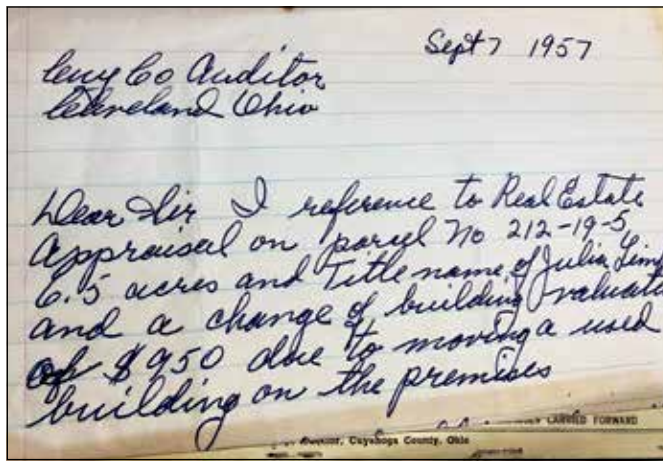 Sept 7 1957
Cuy Co Auditor
Cleveland Ohio
Dear Sir I reference to Real Estate
Appraisal on parcel No 212-19-5
6.5 acres and Title name of Julia
and a change of building
of $950 due to moving a used
building on the premises
CARRIED FORWARD
Cuyahoga County, Ohio